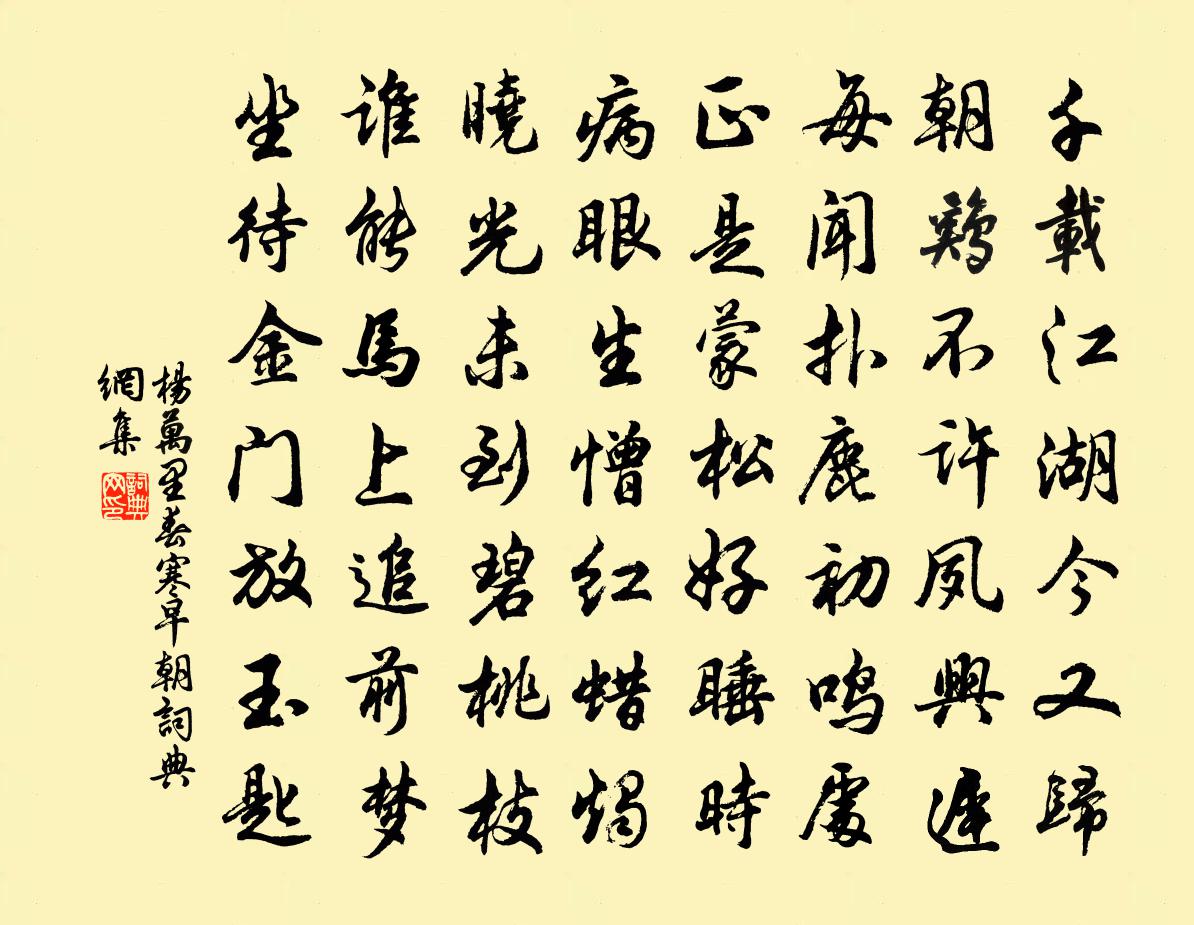 千載江湖今又歸
朝鷄不許夙興遲
每聞扑鹿初鳴處
正是蒙松好睡時
病眼生憎红蜡燭
曉光未到碧桃枝
谁能馬上追前梦
坐待金门放玉匙
楊萬里春寒早朝詞典
網集
詞典
网印